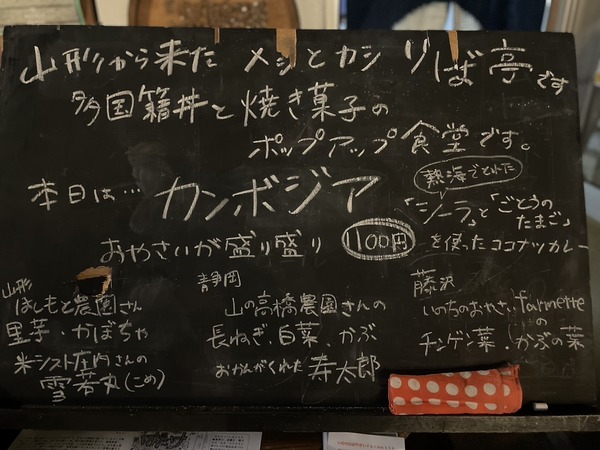 山形から来た メシとカシ りば亭です
多国籍丼と焼き菓子の
ポップアップ食堂です。
本日は… カンボジア
熱海でとれた
「シーラ」と「ごとうのたまご」
おやさいが盛り盛り 1100円 を使ったココナツカレー
山形
はしもと農園さん
里芋・かぼちゃ
米シスト庄内さんの
雪若丸(こめ)
静岡
山の高橋農園さんの
長ねぎ、白菜、かぶ
おかんがくれた 寿太郎
藤沢
いのちのおやさい farmetteの
チンゲン菜、かぶの菜